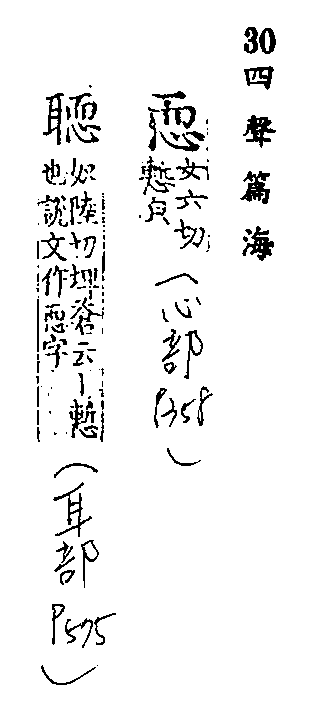 30 四聲篇海
恧
女六切
慙皃
(心部 P358)
如陸切埤蒼云丨慙
也說文作恧字
(耳部 P575)